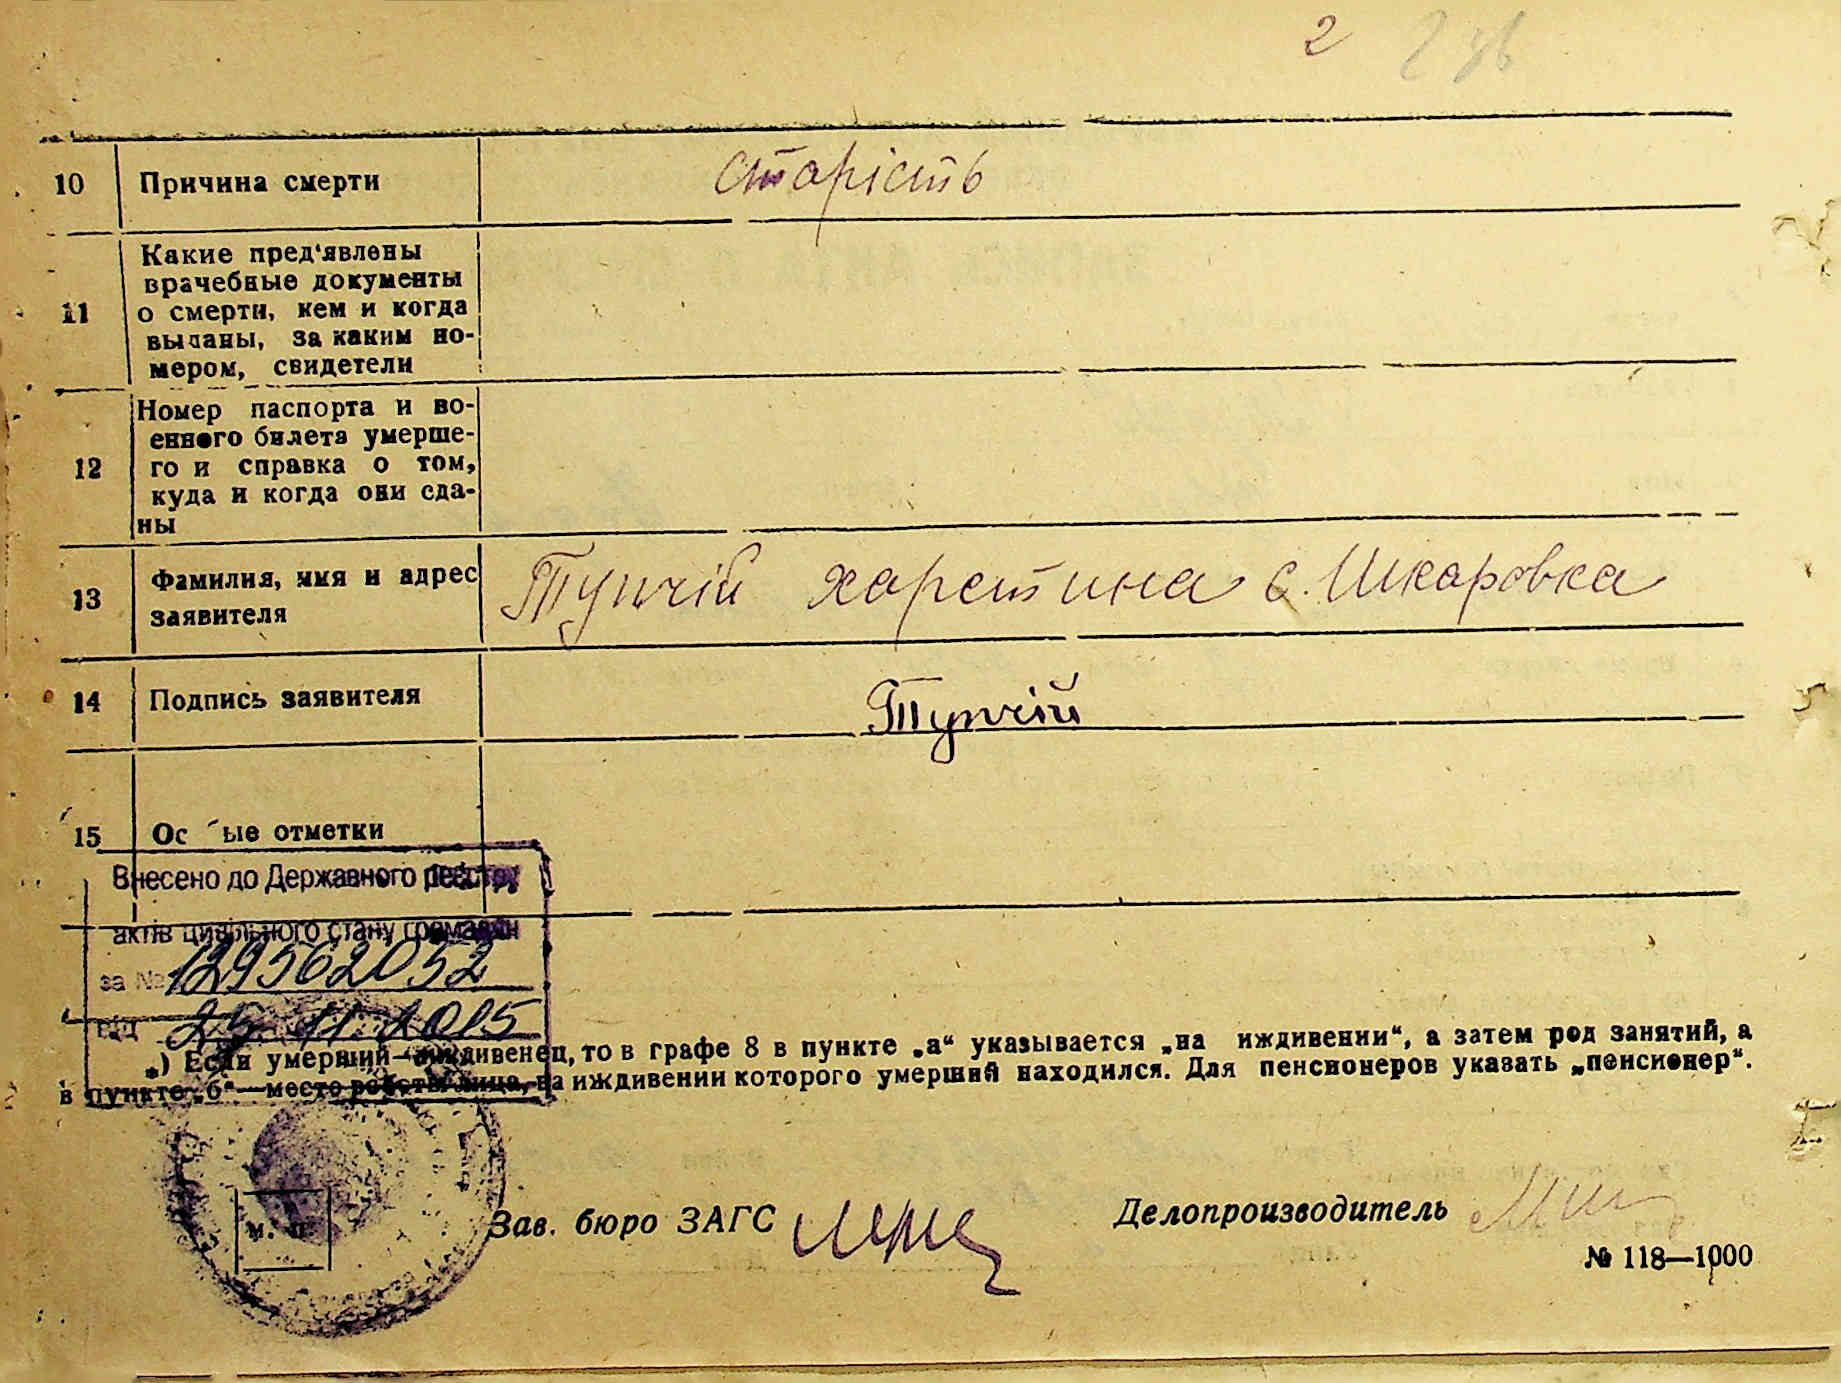 2
10 Причина смерти старість
11 Какие пред'явлены
врачебные документы
о смерти, кем и когда
выданы, за каким но-
мером, свидетели
12 Номер паспорта и во-
енного билета умерше-
го и справка о том,
куда и когда они сда-
ны
13 Фамилия, имя и адрес
заявителя
Тупчій харетина с. Шкаровка
14 Подпись заявителя Тупчій
15 Ос ые отметки
Внесено до Державного реєстру
актів цивільного стану громадян
за № 129562052
від 25.11.2015
*) Если умерший—иждивенец, то в графе 8 в пункте „а“ указывается „на иждивении“, а затем род занятий, а
в пункте „б“—место работы лица, на иждивении которого умерший находился. Для пенсионеров указать „пенсионер“.
М. П.
Зав. бюро ЗАГС
Делопроизводитель
№ 118—1000